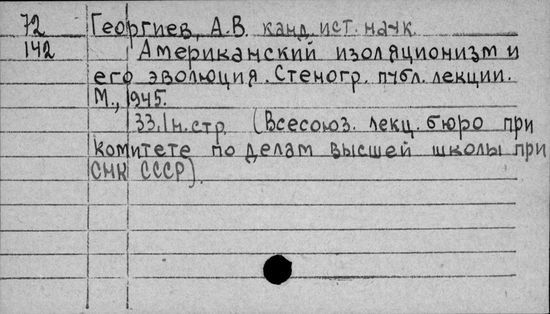 72 Георгиев, А.В. канд. ист. наук.
142 Американский изоляционизм и
его эволюция. Стеногр. публ. лекции.
М., 1945.
33.1н.стр. (Всесоюз. лекц. бюро при
комитете по делам высшей школы при
СНК СССР).